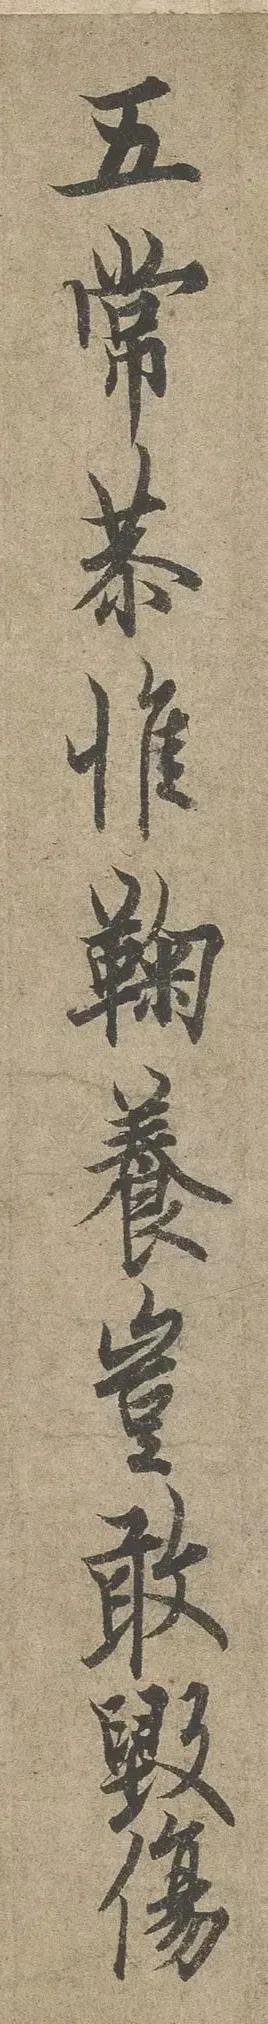 五常恭惟鞠養豈敢毀傷